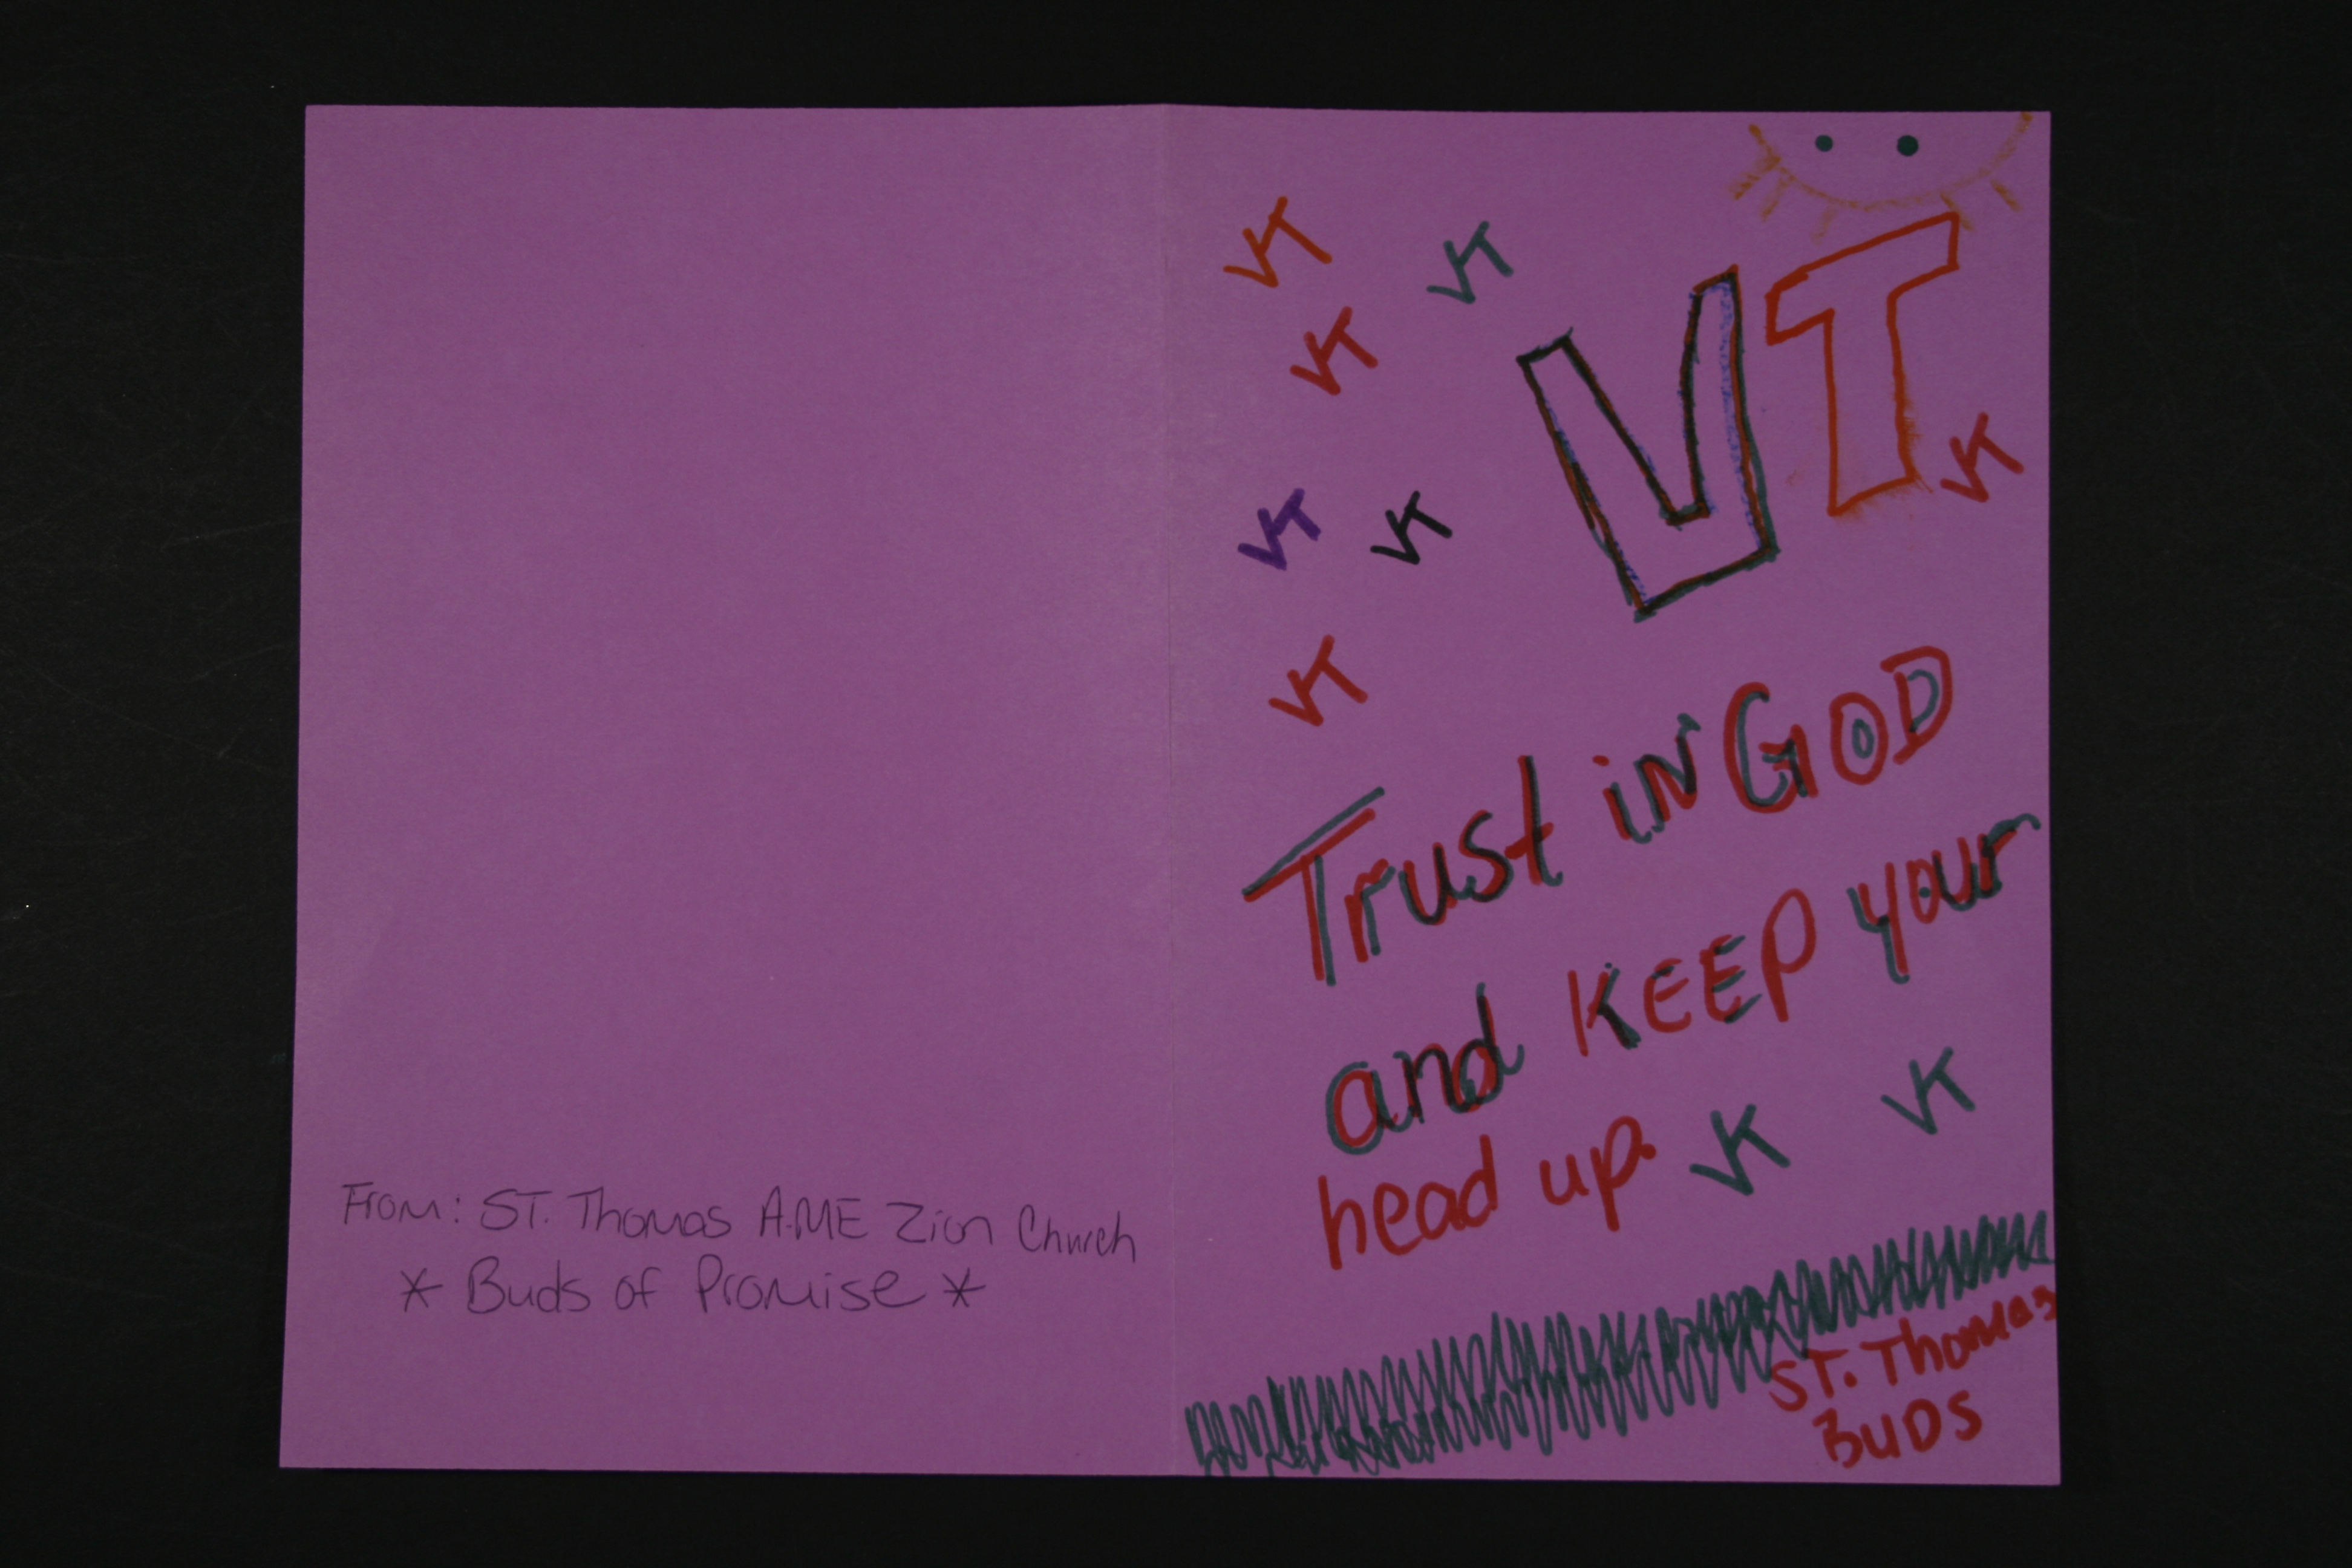 From: ST. Thomas A.M.E Zion Church
* Buds of Promise *
VT
VT
VT
VT
VT
VT
VT
VT
Trust iN GOD
and KEEP your
head up.
VT
VT
ST. Thomas
BUDS